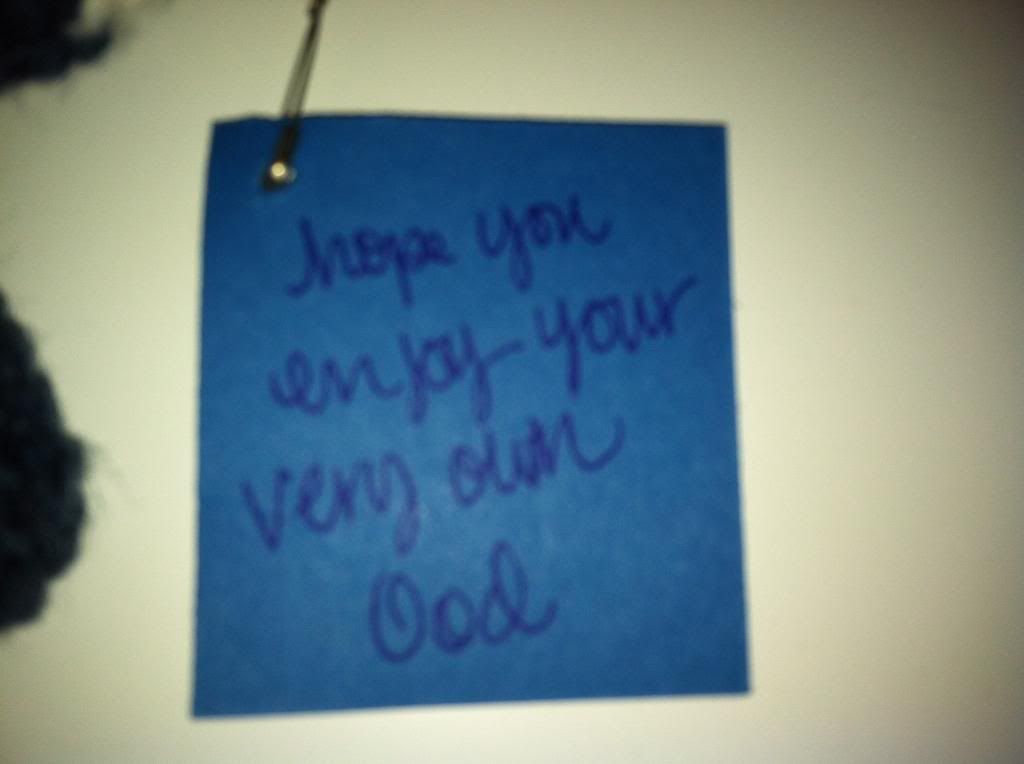 hope you
enjoy your
very own
Ood